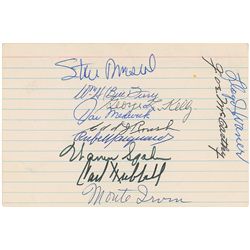 Stan Musial
Wm H "Bill" Terry
George L. Kelly
Joe Medwick
Edd J Roush
Rube Marquard
Warren Spahn
Carl Hubbell
Monte Irvin
Lloyd Waner
Joe McCarthy